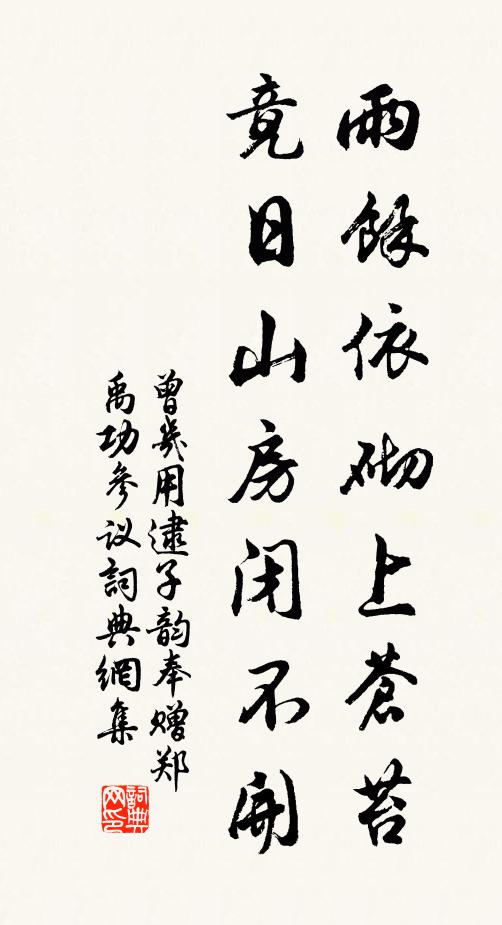 雨餘依砌上蒼苔
竟日山房閉不開
曾幾用逮子韵奉赠郑
禹功參议詞典網集
詞典网印